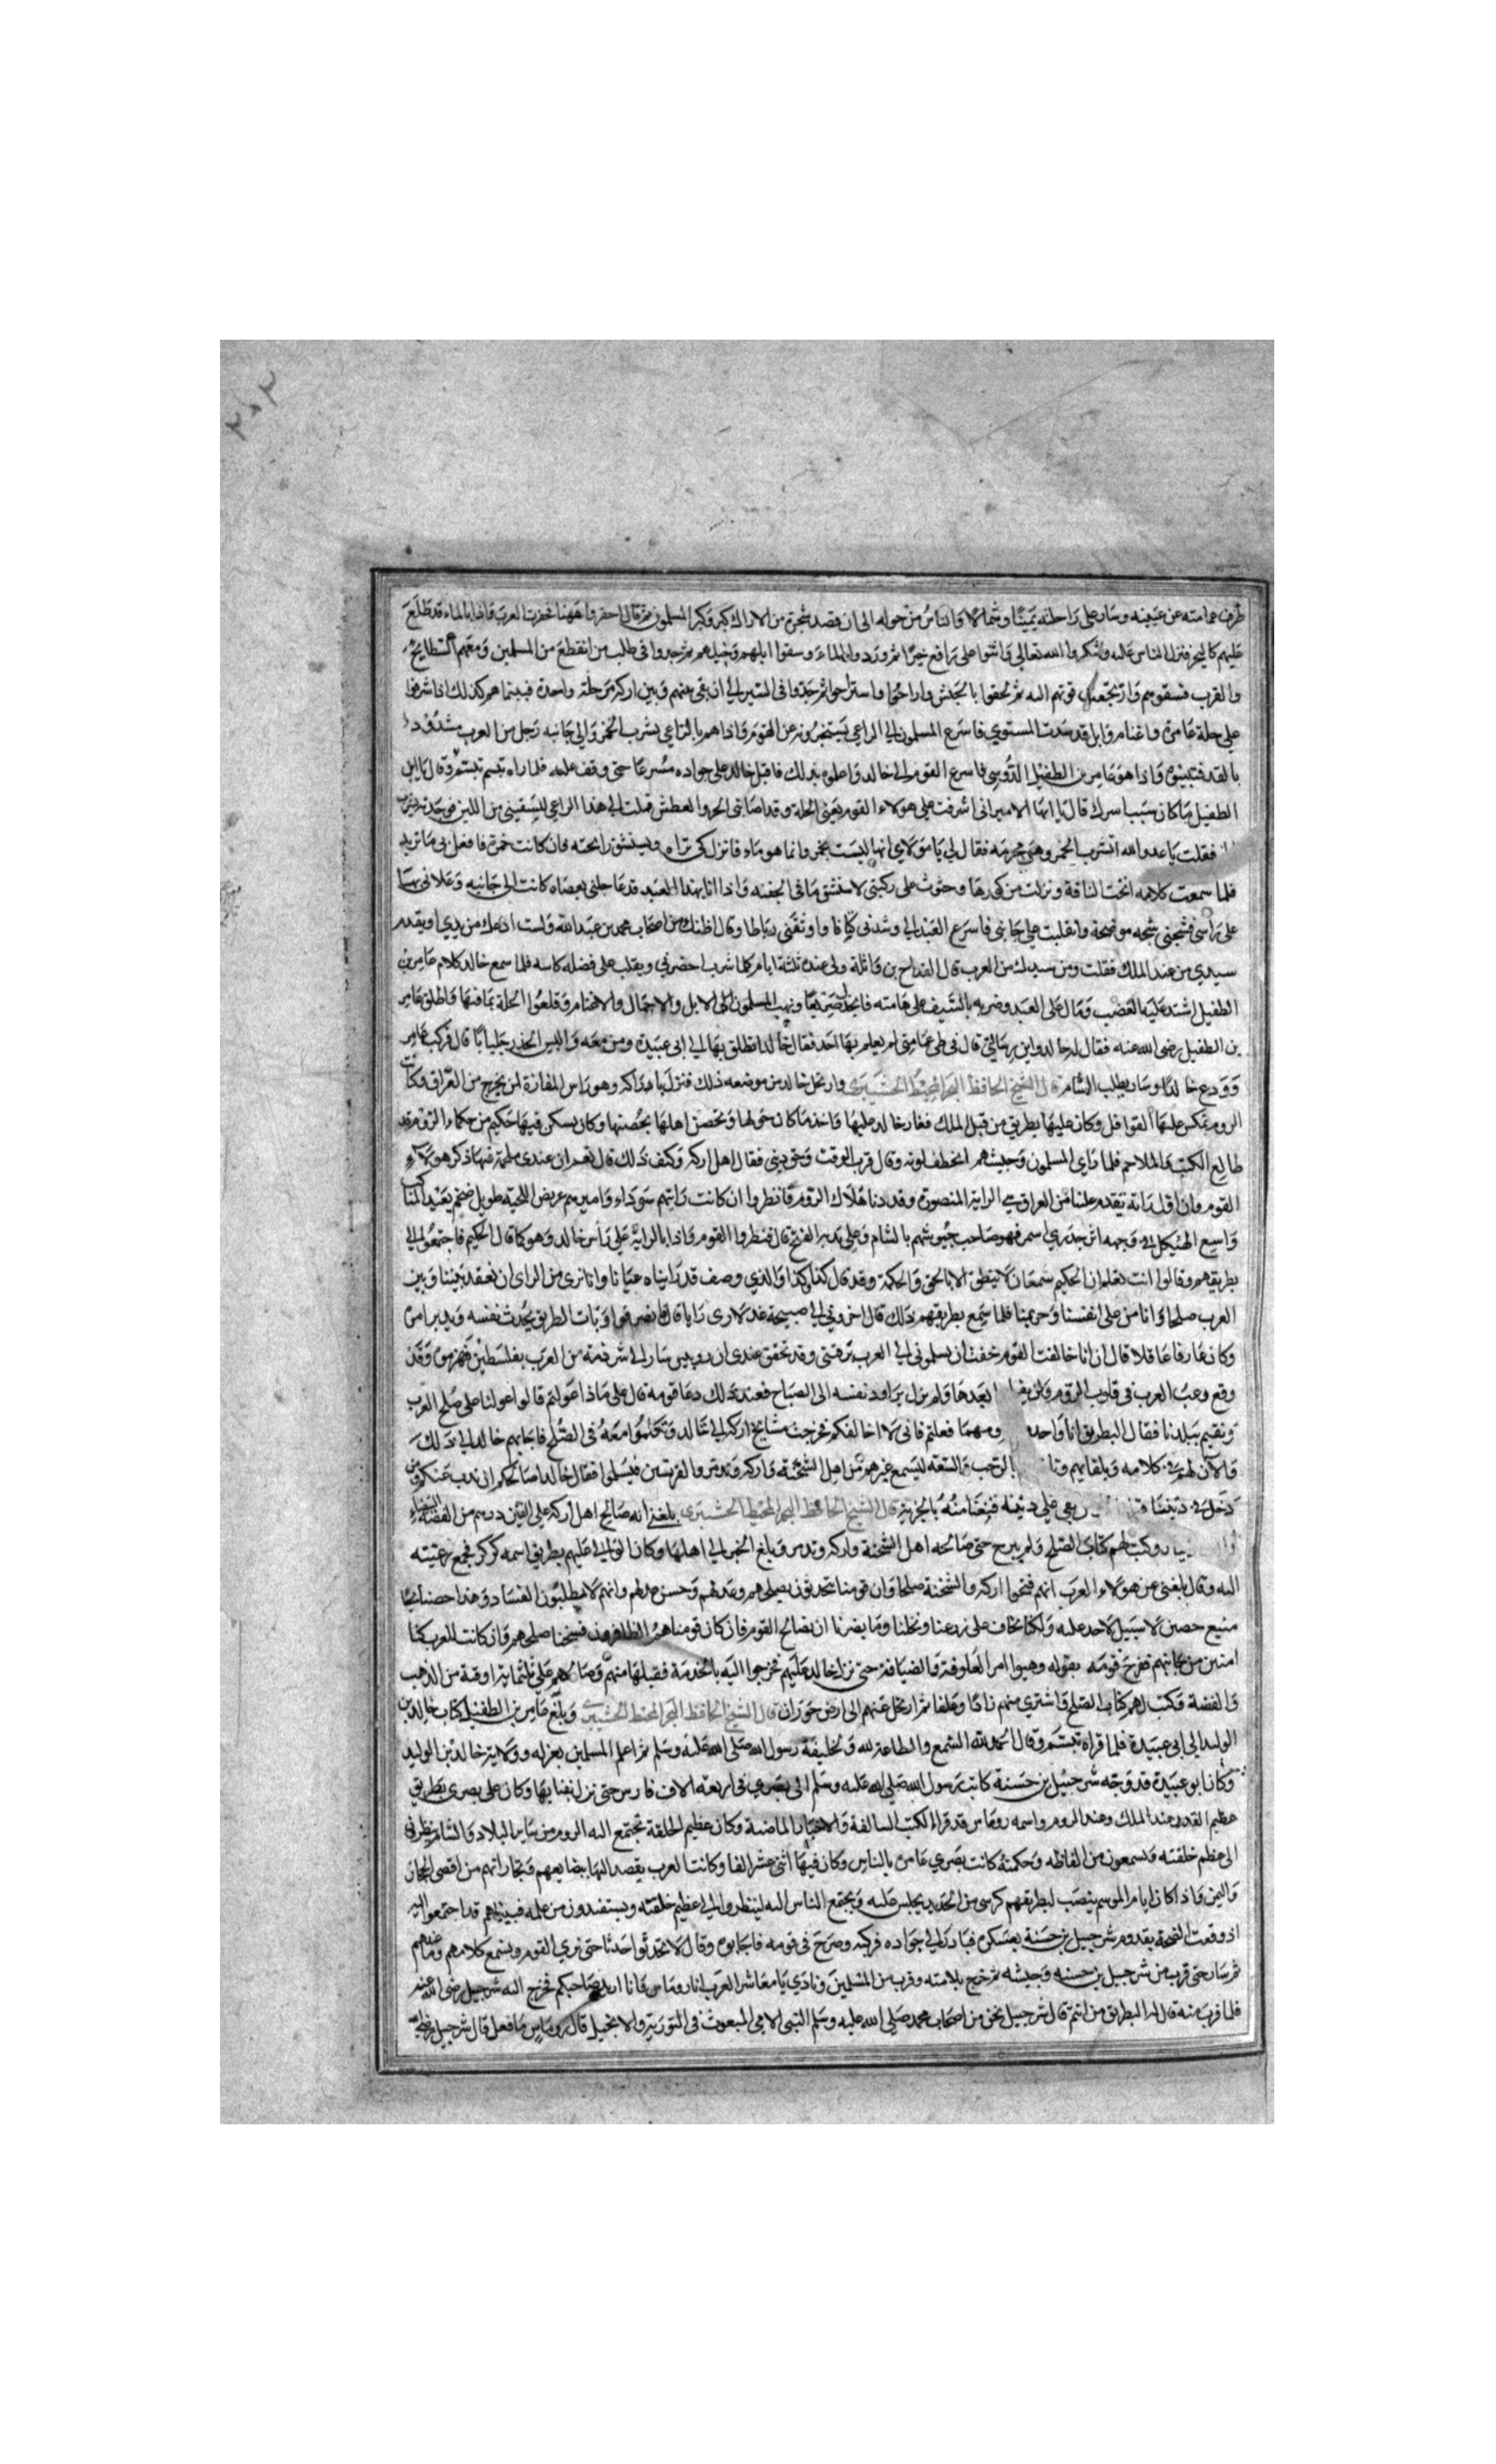 طرف عمامته عن عينيه وسار على راحلته يمينا وشمالا والناس من حوله الى ان قصد شجرة من الاراك كبر وكبر المسلمون ثم قال احفروا ههنا فحفرت العرب فاذا بالماء قد طلع
عليهم كالبحر فنزل الناس عليه وشكروا الله تعالى واثنوا على رافع خيرا ثم وردوا الماء وسقوا ابلهم وخيلهم ثم جدوا في طلب من انقطع من المسلمين ومعهم السطايح
والقرب فسقوهم وارتجعت قوتهم اليه ثم لحقوا بالجيش واراحوا واستراحوا ثم جدوا في المسير الى ان بقى بينهم وبين اركه مرحلة واحدة فبينما هم كذلك اذ اشرفوا
على حلة عامرة واغنام وابل قد سدت المستوى فاسرع المسلمون الى الراعي يستخبرونه عن القوم واذا هم بالراعي يشرب الخمر والى جانبه رجل من العرب مشدود
بالقد فتبينوه واذا هو عامر بن الطفيل الدوسي فاسرع القوم الى خالد واعلموه بذلك فاقبل خالد على جواده مسرعا حتى وقف عليه فلما راه تبسم وقال يا ابن
الطفيل ما كان سبب اسرك قال يا ايها الامير اني اشرفت على هولاء القوم يعني الحلة وقد اصابني الحر والعطش فملت الى هذا الراعي ليسقيني من اللبن فوجدته يشرب
فقلت يا عدو الله اتشرب الخمر وهي محرمه فقال لي يا مولاي انها ليست بخمر وانما هو ماء فانزل كي تراه وتستنشق رائحته فان كانت خمرة فافعل بي ما تريد
فلما سمعت كلامه انخت الناقة ونزلت من كورها وجثوت على ركبتي لاستنشق ما في الجفنه واذا انا بهذا العبد قد عاجلني بعصاه كانت الى جانبه وعلاني بها
على راسي فشجني شجه موضحة وانقلبت على جانبي فاسرع العبد الى وشدني كتافا واوثقني رباطا وقال اظنك من اصحاب محمد بن عبد الله ولست ادعك من يدي او يقدم
سيدي من عند الملك فقلت ومن سيدك من العرب قال القداح بن واثلة ولي عنده ثلثة ايام كلما شرب احضرني ويقلب على فضله كاسه فلما سمع خالد كلام عامر بن
الطفيل اشتد عليه الغضب ومال على العبد وضربه بالسيف على هامته فانجدل صريعا ونهب المسلمون الابل والاحمال والاغنام وقلعوا الحلة بما فيها واطلق عامر
بن الطفيل رضى الله عنه فقال له خالد واين رسالتي قال في طي عمامتي لم يعلم بها احد فقال خالد انطلق بها الى ابي عبيدة ومن معه والبس الحذر جلبابا قال فركب عامر
وودع خالدا وسار يطلب الشام قال الشيخ الحافظ البحر المحيط الحشيبري وارتحل خالد من موضعه ذلك فنزل باركه وهو راس المفازة لمن يخرج من العراق وكانت
الروم تمكس عليها القوافل وكان عليها بطريق من قبل الملك فغار خالد عليها واخذ ما كان حولها وتحصن اهلها بحصنها وكان يسكن فيها حكيم من حكماء الروم قد
طالع الكتب والملاحم فلما راي المسلمون وجيشهم انخطف لونه وقال قرب الوقت وحق ديني فقال اهل اركه وكيف ذلك قال نعم ان عندي ملحمة فيها ذكر هولاء
القوم وان اول راية تقدم علينا من العراق هي الراية المنصورة وقد دنا هلاك الروم فانظروا ان كانت رايتهم سوداء واميرهم عريض اللحية طويل ضخم بعيد المناكب
واسع الهيكل في وجهه اثر جدري اسمر فهو صاحب جيوشهم بالشام وعلى يديه الفتح قال فنظروا القوم واذا بالراية على راس خالد وهو كما قال الحكيم فاجتمعوا الى
بطريقهم وقالوا انت تعلم ان الحكيم سمعان لا ينطق الا بالحق والحكمة وقد قال كذا وكذا والذي وصف قد رايناه عيانا وانا نرى من الراي ان نعقد بيننا وبين
العرب صلحا وانا من على انفسنا وحريمنا فلما سمع بطريقهم ذلك قال اخروني الى صبيحة غد لارى رايا قال فانصرفوا وبات البطريق يحدث نفسه ويدبر امره
وكان عارفا عاقلا قال ان انا خالفت القوم خفت ان يسلموني الى العرب برقبتي وقد تحقق عندي ان روبيس سار الى شرذمة من العرب بفلسطين فهزموه وقد
وقع رعب العرب في قلوب الروم بعدها ولم يزل يراود نفسه الى الصباح فعند ذلك دعا قومه قال على ماذا عولتم قالوا عولنا على صلح العرب
ونقيم ببلدنا فقال البطريق انا واحد ومهما فعلتم فاني لا اخالفكم فخرجت مشايخ اركه الى خالد وتكلموا معه في الصلح فاجابهم خالد الى ذلك
والان لهم في كلامه وتلقاهم بالرحب والسعه ليسمع غيرهم من اهل السخنة واركه وتدمر والقريتين فيسلموا فقال خالد اصالحكم ان نذهب عنكم ومن
دخل في ديننا بقى على دينه قبلنا منه بالجزية قال الشيخ الحافظ البحر المحيط الحشيبري بلغني انه صالح اهل اركه على الفين درهم من الفضة البيضاء
وكتب لهم كتاب الصلح ولم يبرح حتى صالحه اهل السخنة واركه وتدمر وبلغ الخبر الى اهلها وكان الوالي عليهم بطريق اسمه كركر فجمع رعيته
اليه وقال بلغني عن هولاء العرب انهم فتحوا اركه والسخنة صلحا وان قومنا يتحدثون بصلحهم وعدلهم وحسن عدلهم وانهم لا يطلبون الفساد وهذا حصننا
منيع حصين لا سبيل لاحد عليه ولكنا نخاف على زرعنا ونخلنا وما يضرنا ان نصالح القوم فان كان قومنا هم الظافرون فسخنا صلحهم وان كانت العرب كنا
امنين من جانبهم ففرح قومه بقوله وهيوا امر العلوفة والضيافة حتى نزل خالد عليهم فخرجوا اليه بالخدمة فقبلها منهم وصالحهم على ثلثماية اوقية من الذهب
والفضة وكتب لهم كتاب الصلح واشترى منهم زادا وعلفا ثم ارتحل عنهم الى ارض حوران قال الشيخ الحافظ البحر المحيط الحشيبري وبلغ عامر بن الطفيل كتاب خالد بن
الوليد الى ابي عبيدة فلما قراه تبسم وقال الحمد لله السمع والطاعة لله ولخليفة رسول الله صلى الله عليه وسلم ثم اعلم المسلمين بعزله وولاية خالد بن الوليد
وكان ابو عبيدة قد وجه شرحبيل بن حسنة كاتب رسول الله صلى الله عليه وسلم الى بصرى في اربعة الاف فارس حتى نزل بفنايها وكان على بصرى بطريق
عظيم القدر عند الملك وعند الروم واسمه روماس قد قرا الكتب السالفة والاخبار الماضية وكان عظيم الخلقة تجتمع اليه الروم من ساير البلاد والشام ينظرون
الى عظم خلقته ويسمعون من الفاظه وحكمته كانت بصرى عامرة بالناس وكان فيها اثنى عشر الفا وكانت العرب يقصد اليها ببضايعهم وتجاراتهم من اقصى الحجاز
واليمن واذا كان ايام الموسم ينصب لبطريقهم كرسي من الحديد يجلس عليه ويجتمع الناس اليه لينظروا الى عظيم خلقته ويستفيدون من علمه فبينما هم قد اجتمعوا اليه
اذ وقعت الضجة بقدوم شرحبيل بن حسنة بعسكره فبادر الى جواده فركبه وصرخ في قومه فاجابوه وقال لا يحدثوا حدثا حتى نرى القوم ونسمع كلامهم وما عندهم
ثم سار حتى قرب من شرحبيل بن حسنه وجيشه ثم خرج بلامته وقرب من المسلمين ونادى يا معاشر العرب انا روماس وانا اريد صاحبكم فخرج اليه شرحبيل رضى الله عنه
فلما قرب منه قال له البطريق من انتم قال شرحبيل نحن من اصحاب محمد صلى الله عليه وسلم النبي الامي المبعوث في التورية والانجيل قال روماس ما فعل قال شرحبيل